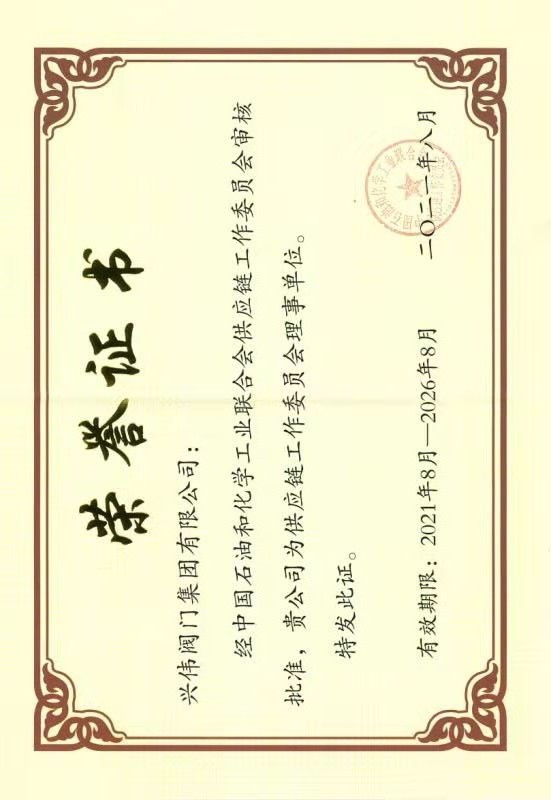 荣誉证书
兴伟阀门集团有限公司：
经中国石油和化学工业联合会供应链工作委员会审核
批准，贵公司为供应链工作委员会理事单位。
特发此证。
有效期限：2021年8月—2026年8月
二〇二一年八月
中国石油和化学工业联合会